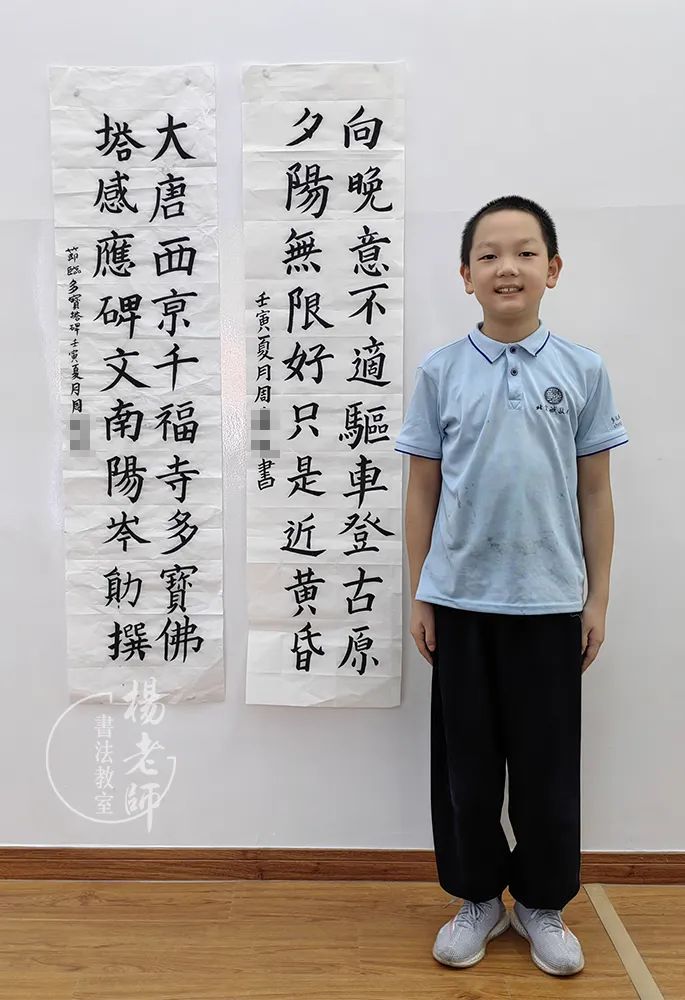 向晚意不適驅車登古原
夕陽無限好只是近黃昏
壬寅夏月周
書
大唐西京千福寺多寶佛
塔感應碑文南陽岑勛撰
節臨多寶塔碑壬寅夏月周
楊老師
書法教室